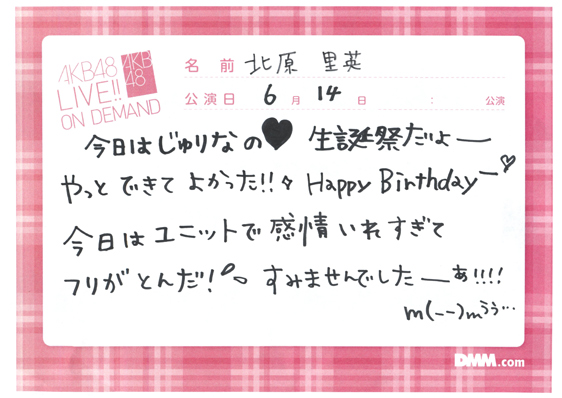 AKB48
LIVE!!
ON DEMAND
AKB
48
名前 北原 里英
公演日 6月 14日 : 公演
今日はじゅりなの♥ 生誕祭だよー
やっとできてよかった!! Happy Birthdayー♡
今日はユニットで感情いれすぎて
フリがとんだ! すみませんでしたーぁ!!!!
m(--)mぅぅ…
DMM.com